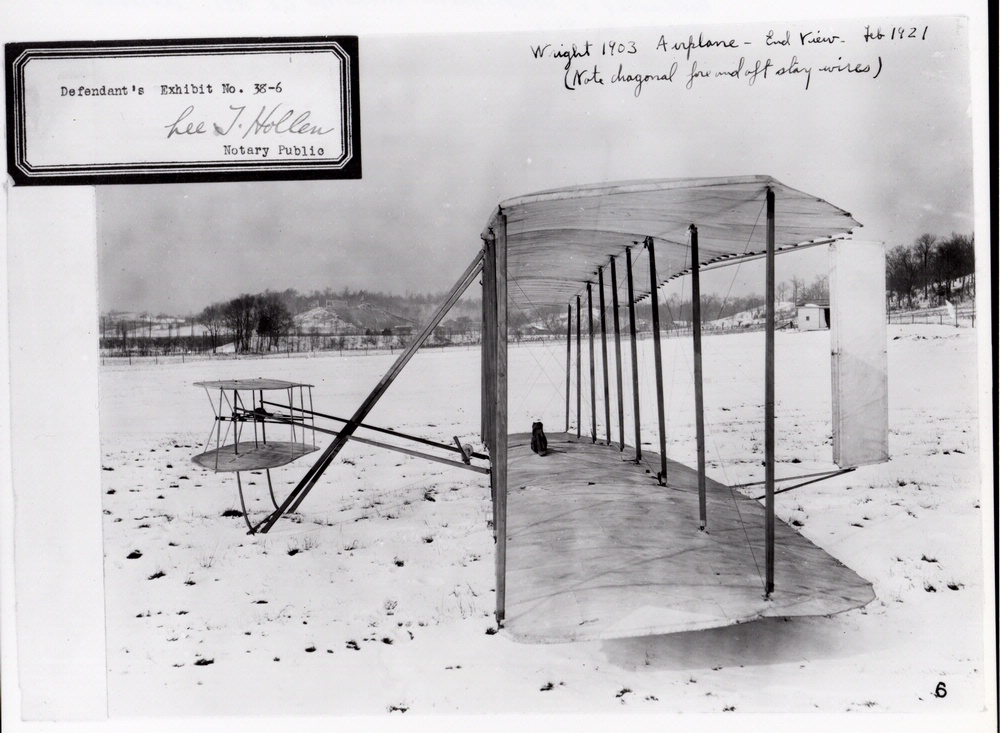 Defendant's Exhibit No. 38-6
Lee T. Hollen
Notary Public
Wright 1903 Airplane - End View - Feb 1921
(Note diagonal fore and aft stay wires)
6